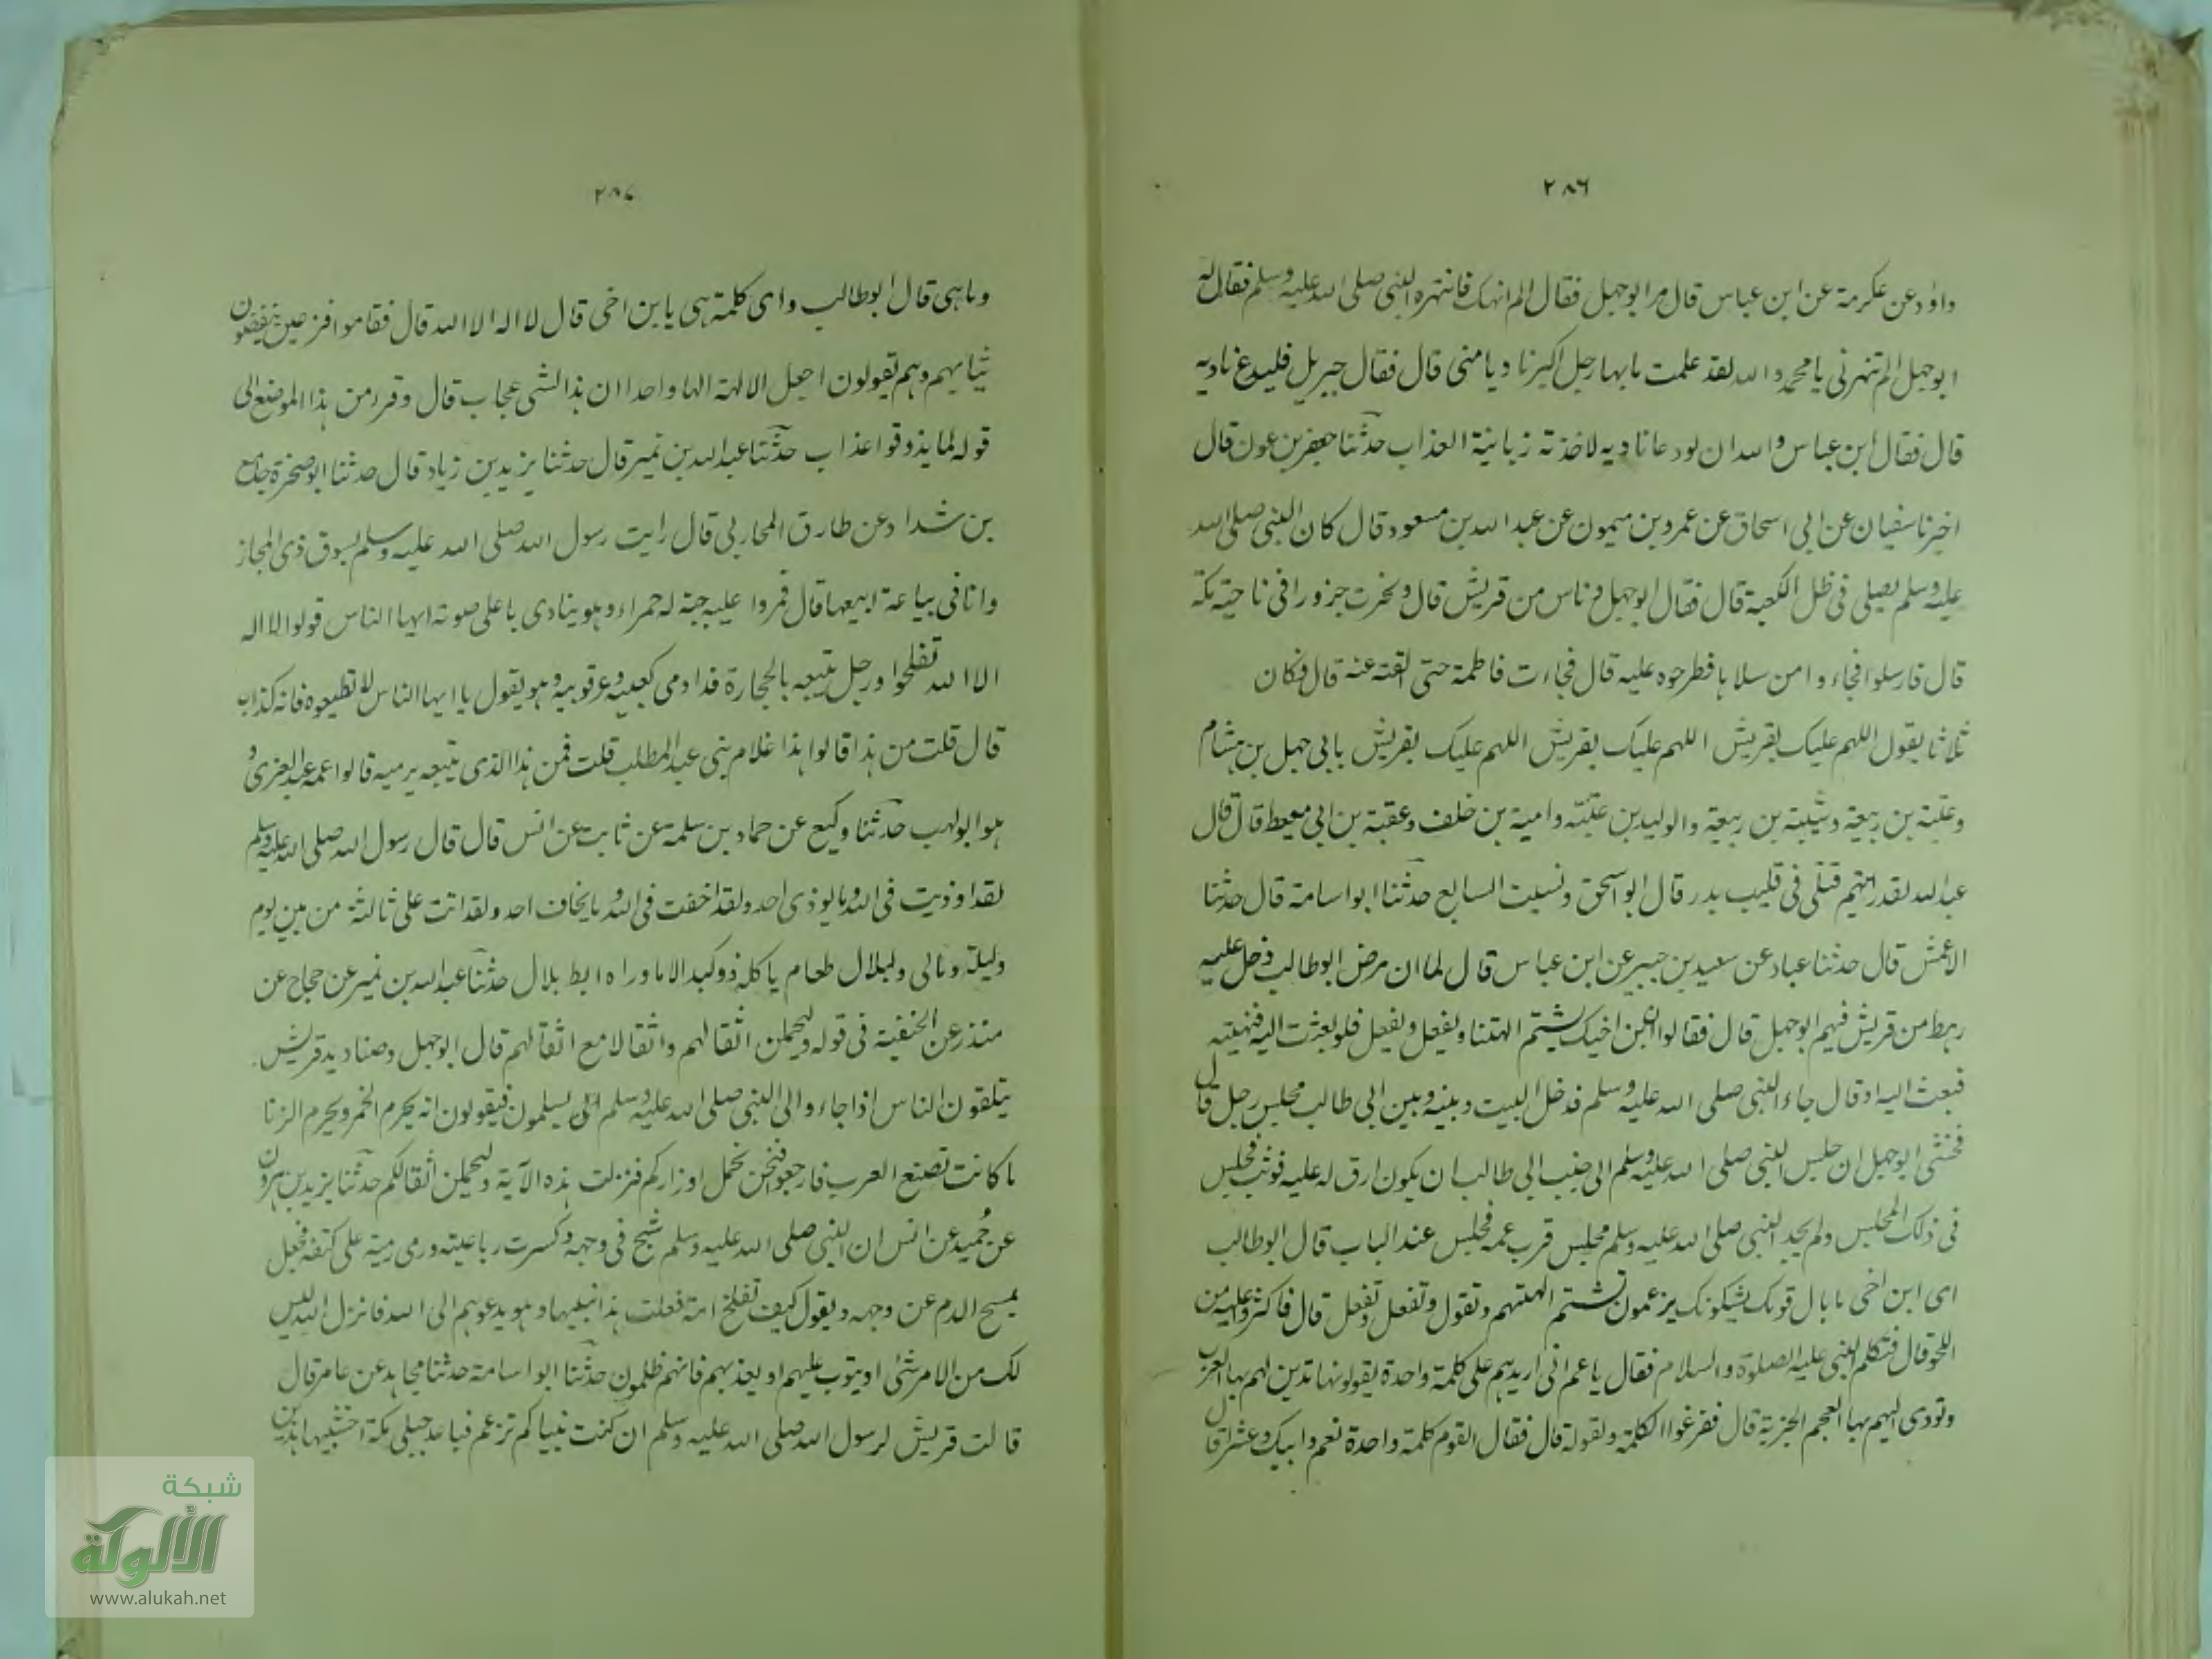 ٢٨٦
داؤد عن عكرمة عن ابن عباس قال مر ابو جهل فقال الم انهك فانتهره النبي صلى الله عليه وسلم فقال له
ابو جهل لم تنهرني يا محمد والله لقد علمت ما بها رجل اكبر ناديا مني قال فقال جبريل فليدع ناديه
قال فقال ابن عباس والله ان لو دعا ناديه لاخذته زبانية العذاب حدثنا جعفر بن عون قال
اخبرنا سفيان عن ابي اسحاق عن عمرو بن ميمون عن عبد الله بن مسعود قال كان النبي صلى الله
عليه وسلم يصلي في ظل الكعبة قال فقال ابو جهل وناس من قريش قال ونحرت جزورا في ناحية مكة
قال فارسلوا فجاءوا من سلاها فطرحوه عليه قال فجاءت فاطمة حتى القته عنه قال فكان
ثلاثا يقول اللهم عليك بقريش اللهم عليك بقريش اللهم عليك بقريش بابي جهل بن هشام
وعتبة بن ربيعة وشيبة بن ربيعة والوليد بن عتبة وامية بن خلف وعقبة بن ابي معيط قال قال
عبد الله لقد رايتهم قتلى في قليب بدر قال ابو اسحق ونسيت السابع حدثنا ابو اسامة قال حدثنا
الاعمش قال حدثنا عباد عن سعيد بن جبير عن ابن عباس قال لما ان مرض ابو طالب دخل عليه
رهط من قريش فيهم ابو جهل قال فقالوا ان ابن اخيك يشتم الهتنا ويفعل ويفعل فلو بعثت اليه فنهيته
فبعث اليه او قال جاء النبي صلى الله عليه وسلم فدخل البيت وبينه وبين ابي طالب مجلس رجل قال
فخشى ابو جهل ان جلس النبي صلى الله عليه وسلم الى جنب ابي طالب ان يكون ارق له عليه فوثب فجلس
في ذلك المجلس ولم يجد النبي صلى الله عليه وسلم مجلس قرب عمه فجلس عند الباب قال ابو طالب
اى ابن اخى ما بال قومك يشكونك يزعمون تشتم الهتهم وتقول وتفعل وتفعل قال فاكثروا عليه من
اللحو قال فتكلم النبي عليه الصلوة والسلام فقال يا عم انى اريدهم على كلمة واحدة يقولونها تدين لهم بها العرب
وتودى اليهم بها العجم الجزية قال ففزعوا لكلمة ولقوله قال فقال القوم كلمة واحدة نعم وابيك وعشرا قال
٢٨٧
وما هى قال ابو طالب واى كلمة هى يا ابن اخى قال لا اله الا الله قال فقاموا فزعين ينفضون
ثيابهم وهم يقولون اجعل الالهة الها واحدا ان هذا لشى عجاب قال وقرر من هذا الموضع الى
قوله لما يذوقوا عذاب حدثنا عبد الله بن نمير قال حدثنا يزيد بن زياد قال حدثنا ابو صخرة جامع
بن شداد عن طارق المحاربي قال رايت رسول الله صلى الله عليه وسلم بسوق ذى المجاز
وانا في بياعة ابيعها قال فمروا عليه جبة له حمراء وهو ينادى باعلى صوته ايها الناس قولوا لا اله
الا الله تفلحوا ورجل يتبعه بالحجارة قد ادمى كعبيه وعرقوبيه وهو يقول يا ايها الناس لا تطيعوه فانه كذاب
قال قلت من هذا قالوا هذا غلام بني عبد المطلب قلت فمن هذا الذى يتبعه يرميه قالوا عمه عبد العزى و
هو ابو لهب حدثنا وكيع عن حماد بن سلمة عن ثابت عن انس قال قال رسول الله صلى الله عليه وسلم
لقد اوذيت في الله وما يوذى احد ولقد اخفت في الله وما يخاف احد ولقد اتت على ثالثة من بين يوم
وليلة ومالى ولبلال طعام ياكله ذو كبد الا ما وراه ابط بلال حدثنا عبد الله بن نمير عن حجاج عن
منذر عن ابن الحنفية في قوله وليحملن اثقالهم واثقالا مع اثقالهم قال ابو جهل وصناديد قريش
يتلقون الناس اذا جاءوا الى النبي صلى الله عليه وسلم يسلمون فيقولون انه يحرم الخمر ويحرم الزنا
ما كانت تصنع العرب فارجعوا فنحن نحمل اوزاركم فنزلت هذه الآية وليحملن اثقالكم حدثنا يزيد بن هرون
عن حُميد عن انس ان النبي صلى الله عليه وسلم شج في وجهه وكسرت رباعيته ورمى رمية على كتفه فجعل
يمسح الدم عن وجهه ويقول كيف تفلح امة فعلت هذا بنبيها وهو يدعوهم الى الله فانزل الله ليس
لك من الامر شئ او يتوب عليهم او يعذبهم فانهم ظلمون حدثنا ابو اسامة حدثنا مجاهد عن عامر قال
قالت قريش لرسول الله صلى الله عليه وسلم ان كنت نبيا كم تزعم فباعد جبلى مكة اخشبيها هذين
شبكة
الألوكة
www.alukah.net